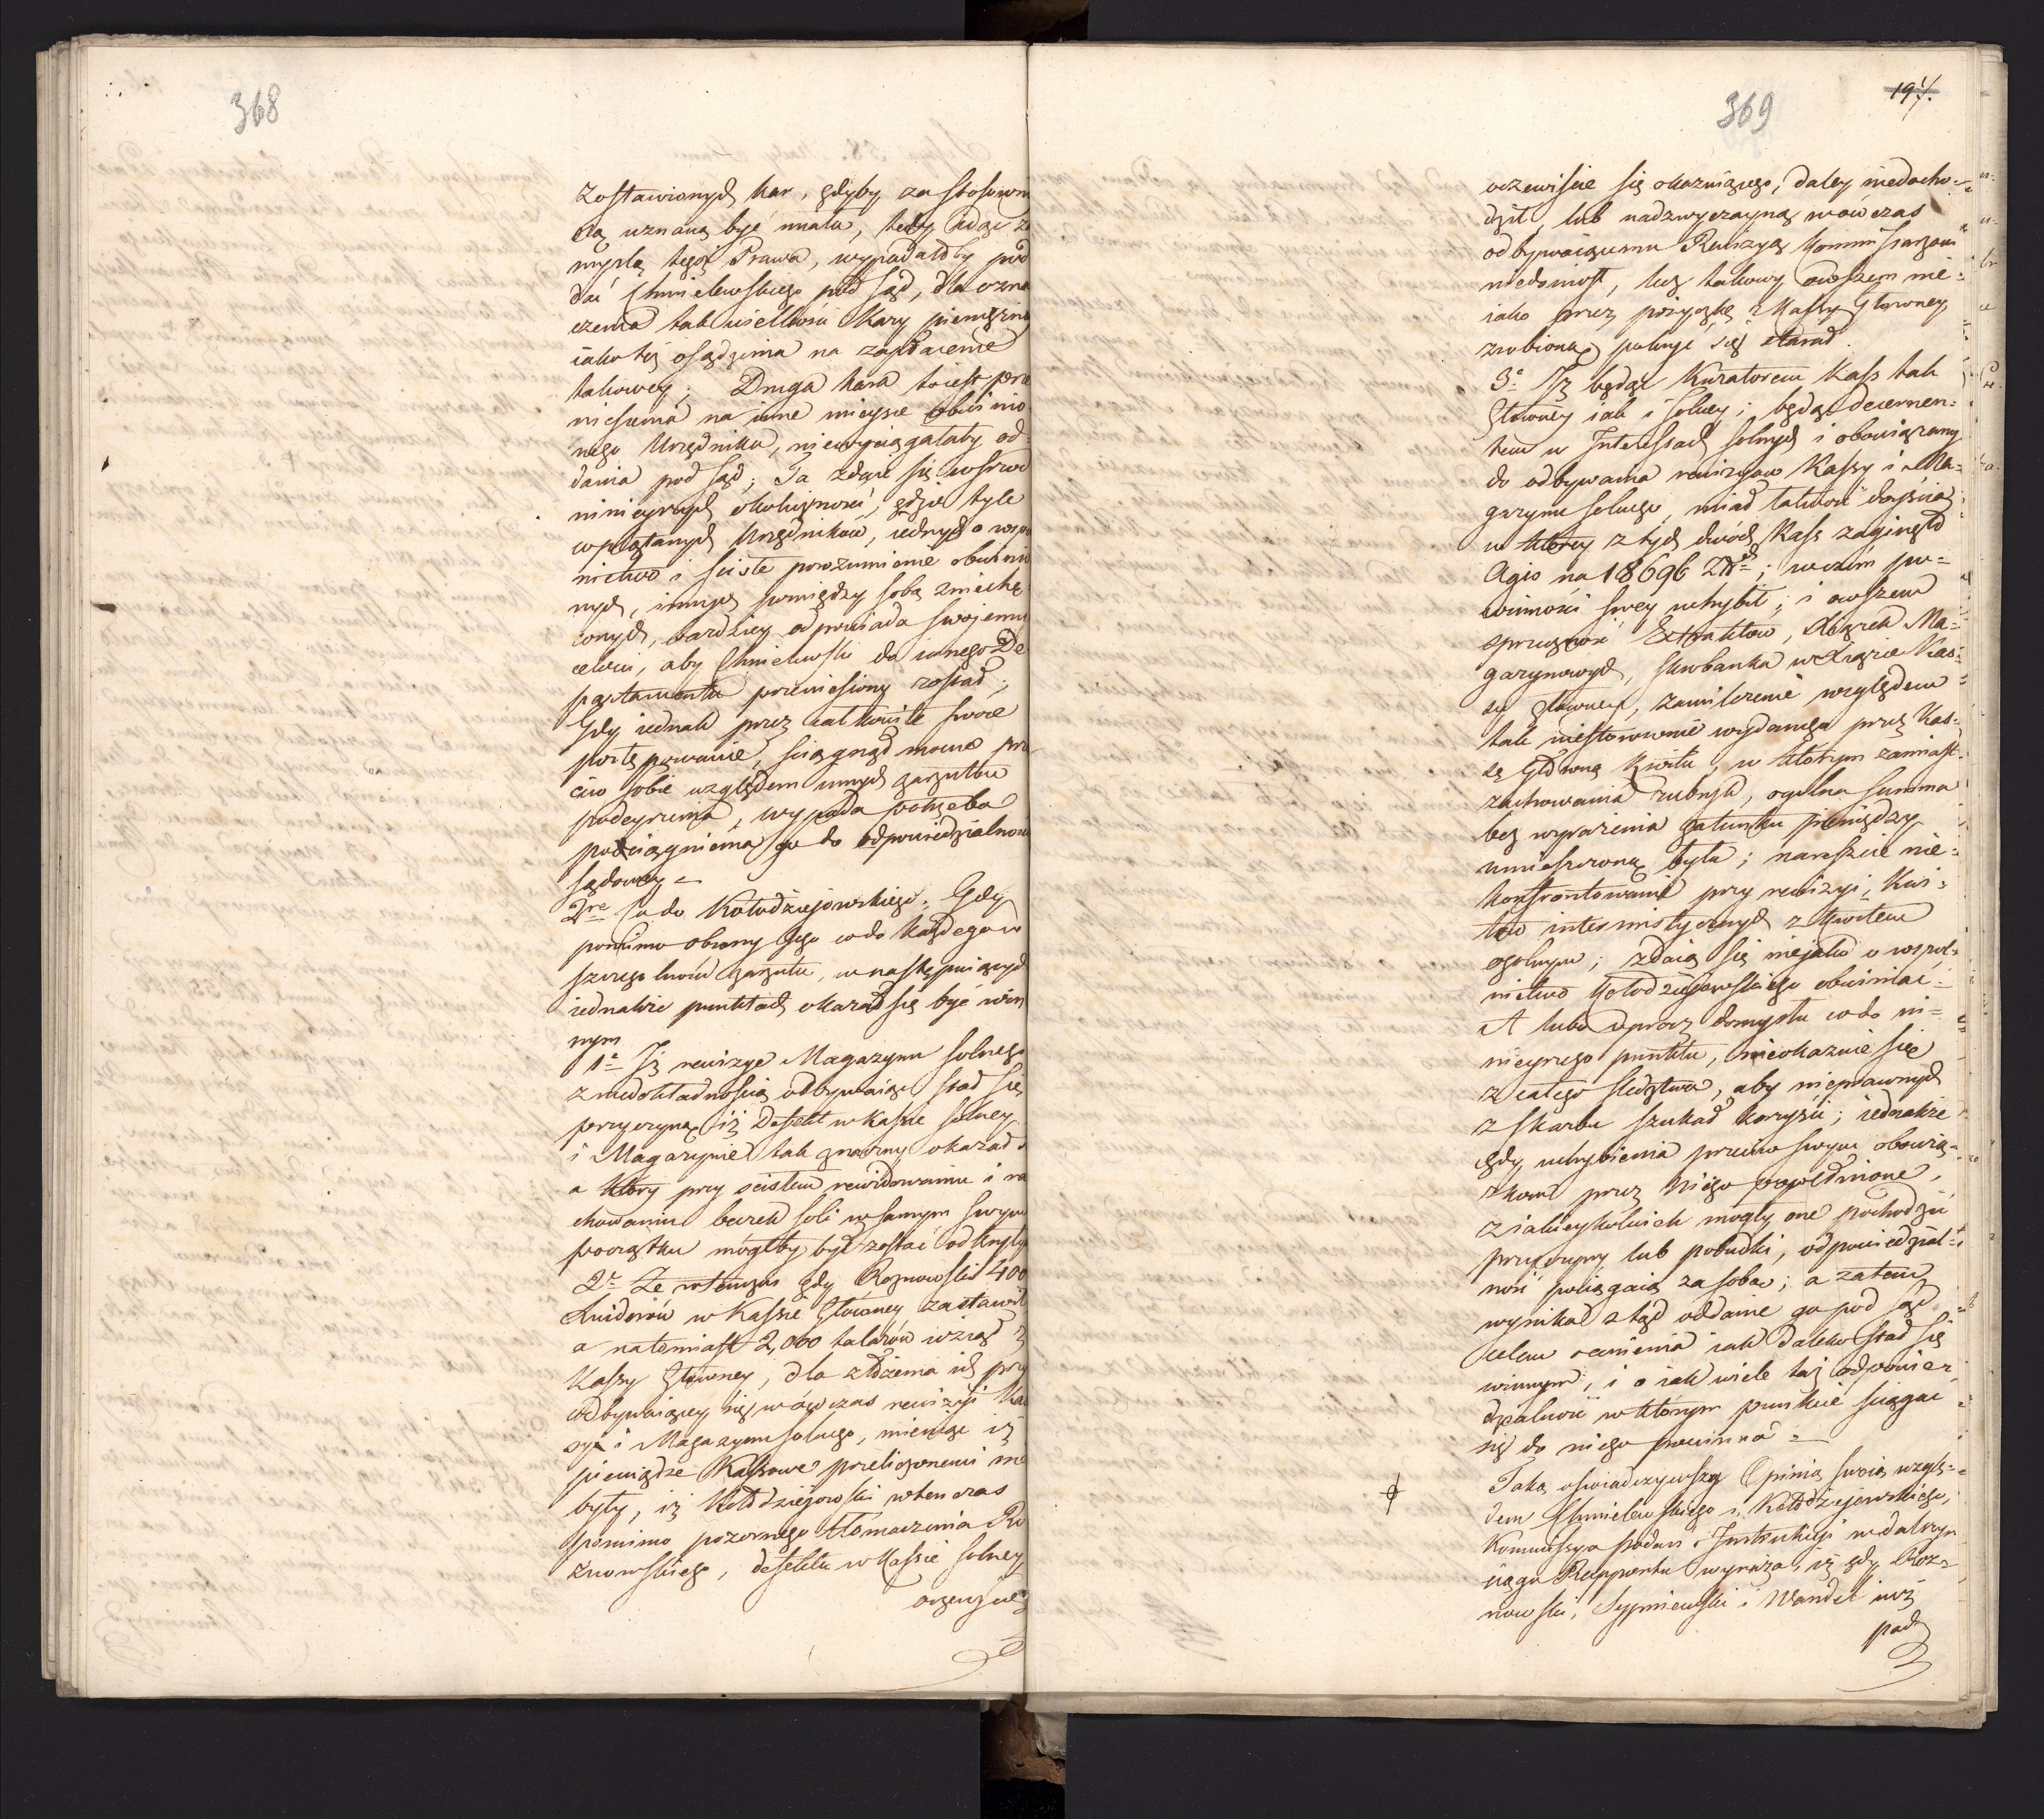 368
zostawionych kar, gdyby za stosown
ną uznaną być miała, tedy idąc za
myślą tegoż Prawa, wypadałoby pod
dać Chmielewskiego pod Sąd, dla ozna
czenia tak wielkości kary pieniężney
iako też osądzenia na zapłacenie
takowey; Druga kara toiest prze
niesienia na inne mieysce obwinio
nego Urzędnika, niewyciągałaby od
dania pod Sąd; Ta zdaie się wśrzod
ninieyszych okoliczności, gdzie tyle
wplątanych Urzędników, iednych o wspo
nictwo i ścisłe porozumienie obwinio
nych, innych pomiędzy sobą zniechę
conych, bardziey odpowiada swojemu
celowi, aby Chmielewski do innego De
partamentu przeniesiony został;
Gdy iednak przez całkowite swoie
postępowanie, ściągnął mocne prze
ciw sobie względem innych zarzutów
podeyrzenia, wypada potrzeba
pociągnienia go do odpowiedzialności
sądowey =
2re Co do Kołodziejowskiego. Gdy
pomimo obrony jego codo każdego w
szczegolności zarzutu, w następuiących
iednakże punktach okazał się być win
nym
1e Iż rewizye Magazynu solnego
z niedokładnością odbywaiąc stał się
przyczyną iż Defekt w kassie solney
i Magazynie tak znaczny okazał s
a który przy scisłem rewidowaniu i ra
chowaniu beczek soli w samym swym
początku mógłby był zostać odkryty
2e Że wtenczas gdy Roznowski 400
Luidorów w Kassie Główney zastawił
a natomiast 2,000 talarów wziął z
Kassy Główney, dla złożenia ich przy
odbywaiącey się wówczas rewizyi Kas
sye i Magazynu solnego, mieniąc iż
pieniądze Kassowe przeliczonemi nie
były, iż Kołodziejowski wtenczas
pomimo pozornego tłomaczenia Ro
znowskiego, defektu w kassie solney
oczewiście
369
197.
oczewiście się okazuiącego, daley niedocho=
dził, lub nadzwyczayną wówczas
odbywaiącemu Rewizyą Kommissarzowi
niedoniosł, lecz takowy owszem nie=
iako przez pożyczkę z Kassy Głowney
zrobioną pokryć się starał.
3e Iż będąc Kuratorem Kass tak
Główney iak i solney; będąc decernen=
tem w Interessach solnych i obowiązany
do odbywania rewizyow Kassy i Ma=
gazynu solnego, miał łatwość doyścia
w którey z tych dwóch Kass zaginęło
Agio na 18696 Złt; w czem po=
winności swey uchybił; i owszem
sprzeczność Extraktow, Xiążek Ma=
gazynowych, skrobanka w Xiążce Kas=
sy Główney, zamilczenie względem
tak niestosownie wydanego przez Kas=
sę Główną Kwitu, w którym zamiast
zachowania rubryk, ogolna summa
bez wyrażenia gatunku pieniędzy
umieszczona była; nareszcie nie=
konfrontowanie przy rewizyi, Kwi=
tow interimistycznych z Kwitem
ogolnym; zdaią się niejako o wspol=
nictwo Kołodziejowskiego obwiniać =
A lubo oprocz domysłu codo ni=
nieyszego punktu, nieokazuie się
z całego śledztwa, aby nieprawnych
z skarbu szukał korzyści; iednakże
gdy uchybienia przeciw swym obowią=
zkom przez Niego popełnione,
z iakieykolwiek mogły one pochodzić
przyczyny lub pobudki, odpowiedzial=
ność pociągaią za sobą; a zatem
wynika z tąd oddanie go pod Sąd
celem ocenienia iak daleko stał się
winnym, i o iak wiele taż odpowie=
dzialność w którym punkcie sciągać
się do niego powinna =
Taką oświadczywszy Opinię swoią wzglę=
dem Chmielewskiego i Kołodziejowskiego,
Kommissya podani Instrukcyi w dalszym
ciągu Rapportu wyraża, iż gdy Roz=
nowski, Sypniewski i Wandel iuż
pod